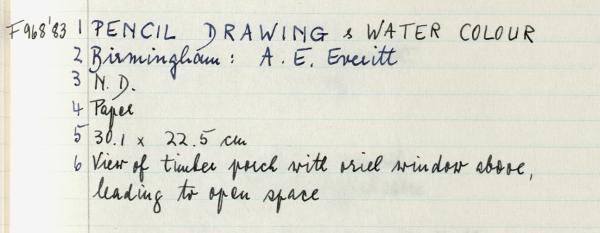 F968'83 1 PENCIL DRAWING & WATER COLOUR
2 Birmingham: A. E. Everitt
3 N.D.
4 Paper
5 30.1 x 22.5 cm
6 View of timber porch with oriel window above,
leading to open space